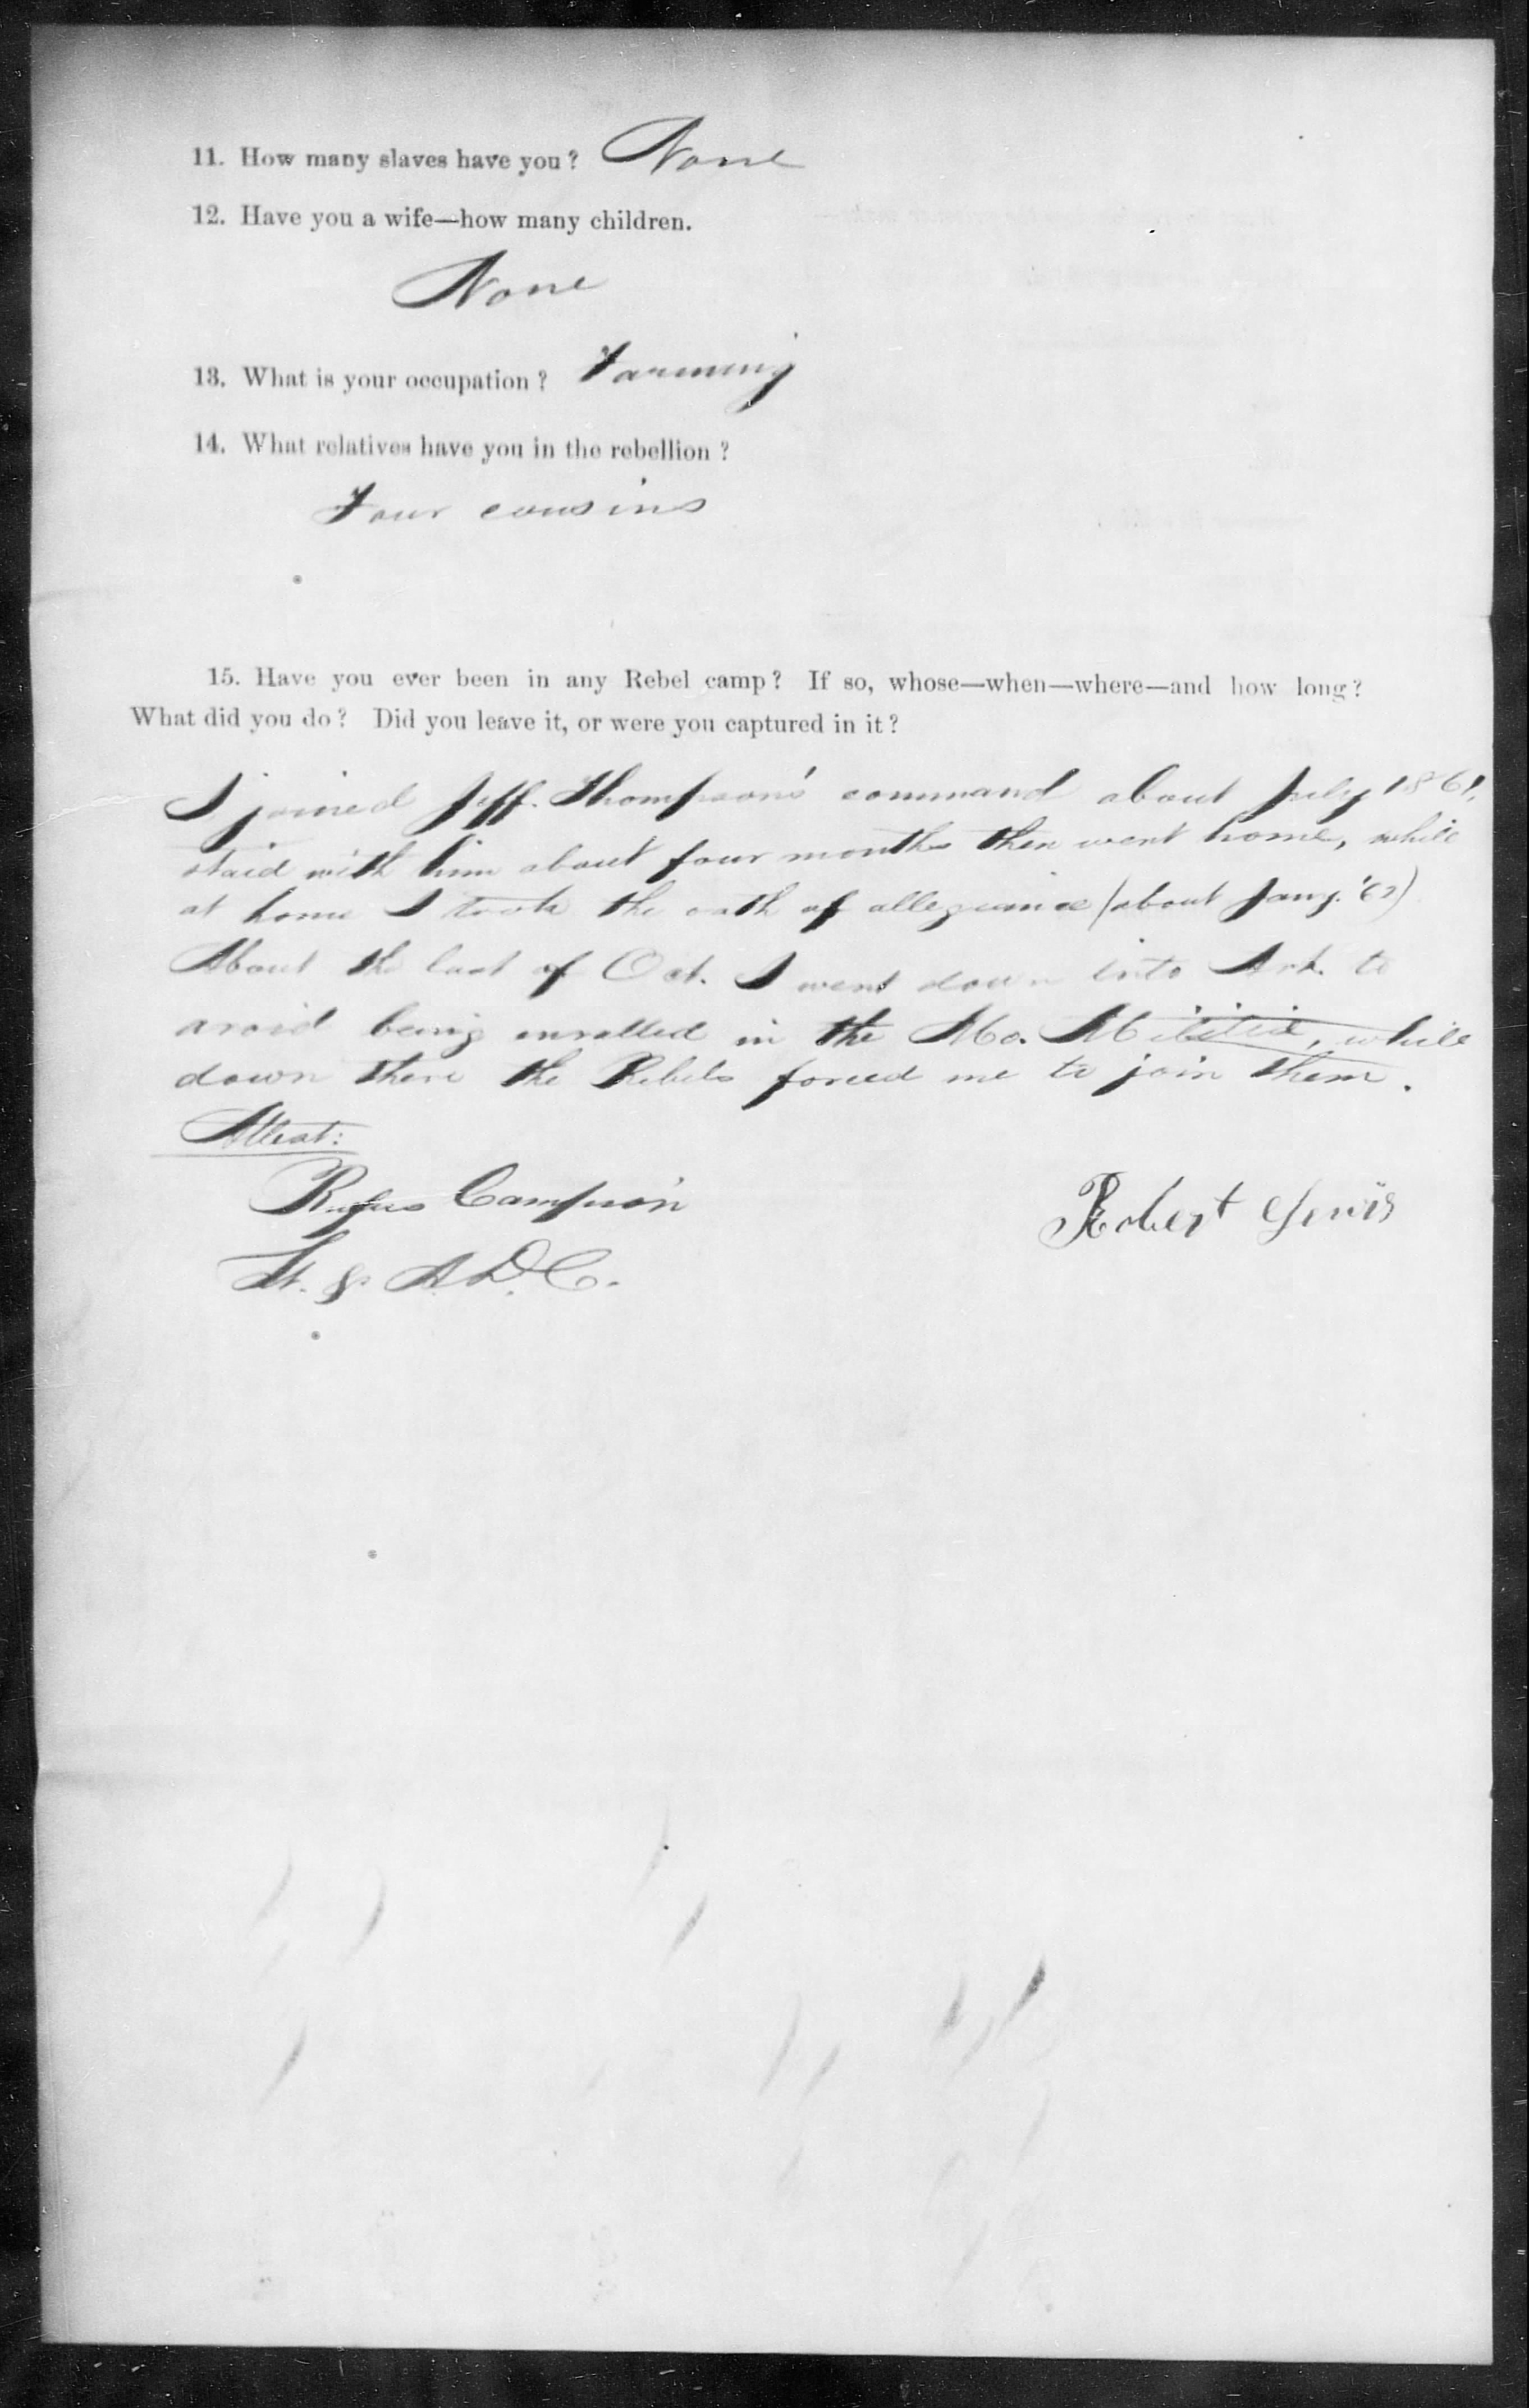 11. How many slaves have you? None
12. Have you a wife—how many children.
None
13. What is your occupation? Farming
14. What relatives have you in the rebellion?
Four cousins
15. Have you ever been in any Rebel camp? If so, whose—when—where—and how long?
What did you do? Did you leave it, or were you captured in it?
I joined Jeff. Thompson's command about July 1861,
staid with him about four months then went home, while
at home I took the oath of allegiance (about Jany. '62)
About the last of Oct. I went down into Ark. to
avoid being enrolled in the Mo. Militia, while
down there the Rebels forced me to join them.
Attest:
Rufus Campion
Robert Lewis
Lt. & A.D.C.